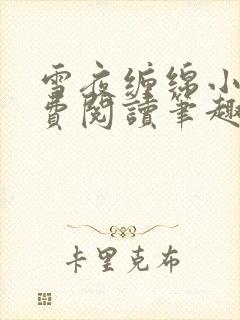 雪夜缠绵小
費閱讀筆趣
卡里克布